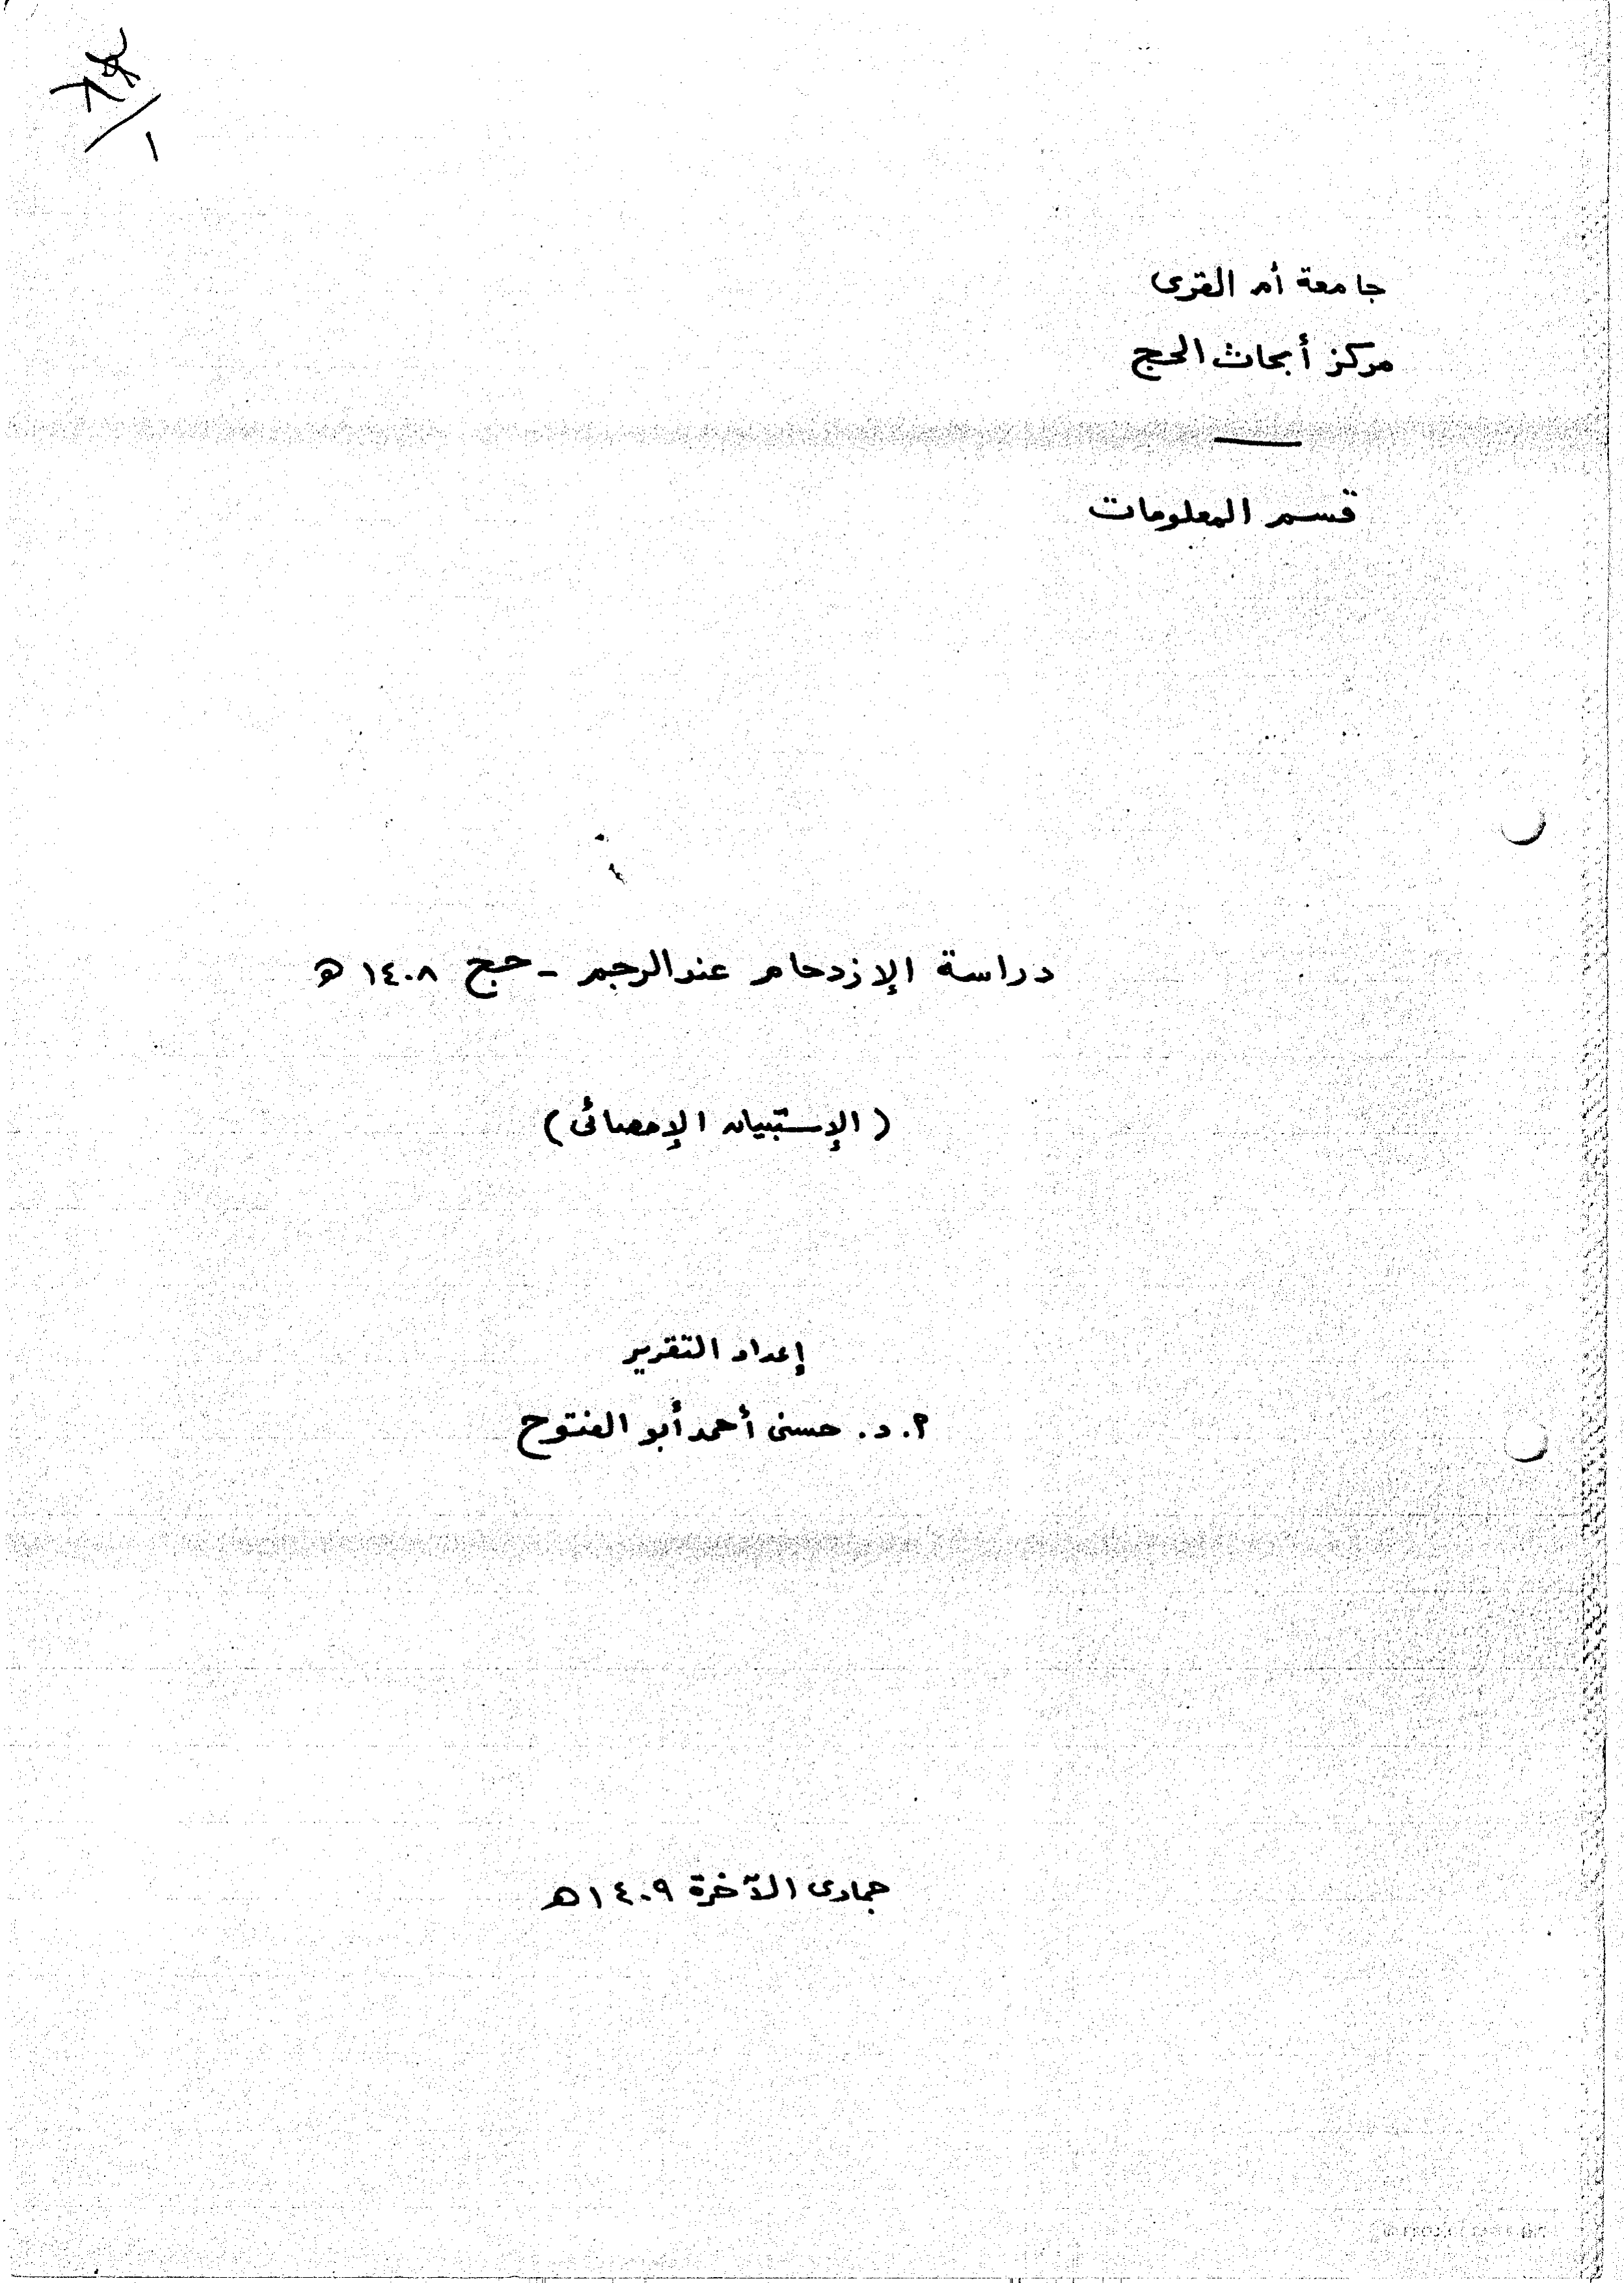 جامعة أم القرى
مركز أبحاث الحج
قسم المعلومات
دراسة الإزدحام عند الرجم - حج ١٤٠٨ هـ
( الإستبيان الإحصائى )
إعداد التقرير
أ. د. حسنى أحمد أبو الفتوح
جمادى الآخرة ١٤٠٩ هـ